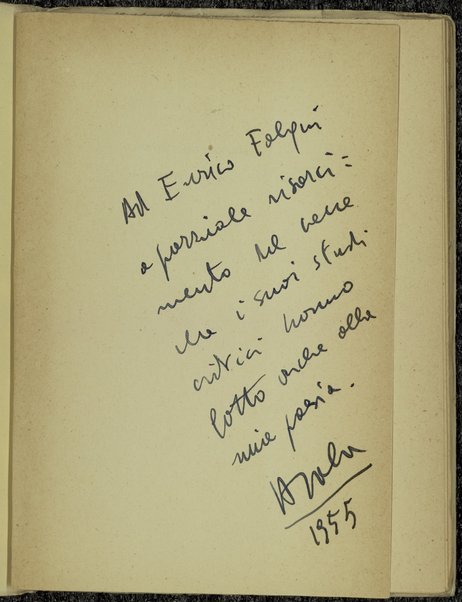 Ad Enrico Falqui
a parziale risarci=
mento del bene
che i suoi studi
critici hanno
fatto anche alla
mia poesia.
1955